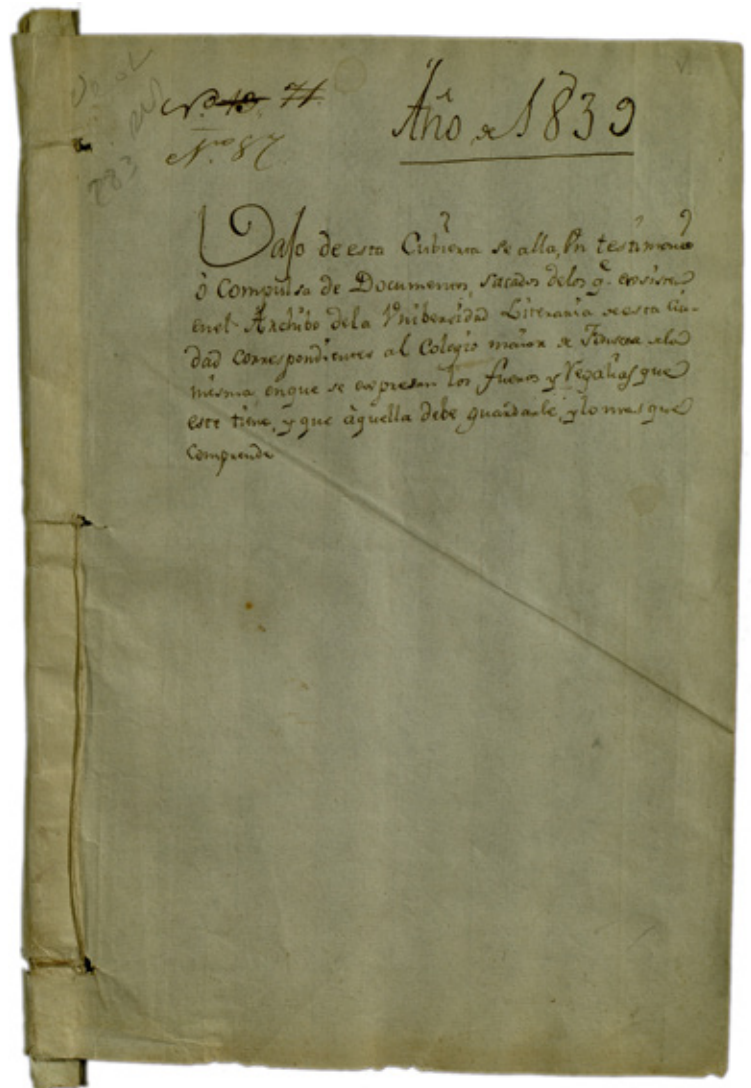 N.º 10. 71.
N.ro 87
Año de 1839
Bajo de esta Cubierta se alla, Vn testimonio
ò Compulsa de Documentos, sacados delos q.e exsisten
enel Archibo dela Vnibersidad Literaria de esta Ciu-
dad correspondientes al Colegio maior de Fonseca dela
misma, enque se expresan los fueros y Regalias que
este tiene, y que àquella debe guardarle, y lo mas que
Comprende